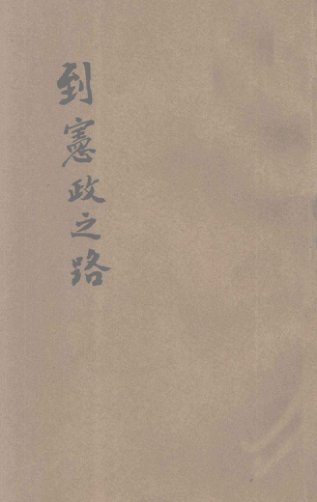 到憲政之路